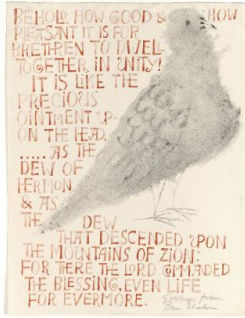 BEHOLD, HOW GOOD & HOW
PLEASANT IT IS FOR
BRETHREN TO DWELL
TOGETHER, IN UNITY!
IT IS LIKE THE
PRECIOUS
OINTMENT UP-
ON THE HEAD,
..... AS THE
DEW OF
HERMON
& AS
THE DEW
THAT DESCENDED UPON
THE MOUNTAINS OF ZION:
FOR THERE THE LORD COMMANDED
THE BLESSING, EVEN LIFE
FOR EVERMORE.
Greetings from
Ben Shahn